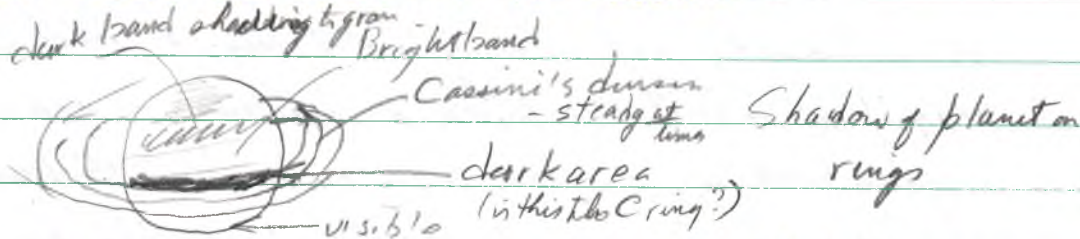 dark band shadding to gray
Bright band
Cassini's division
- steady at
times
Shadow of planet on
rings
dark area
(is this the C ring?)
visible